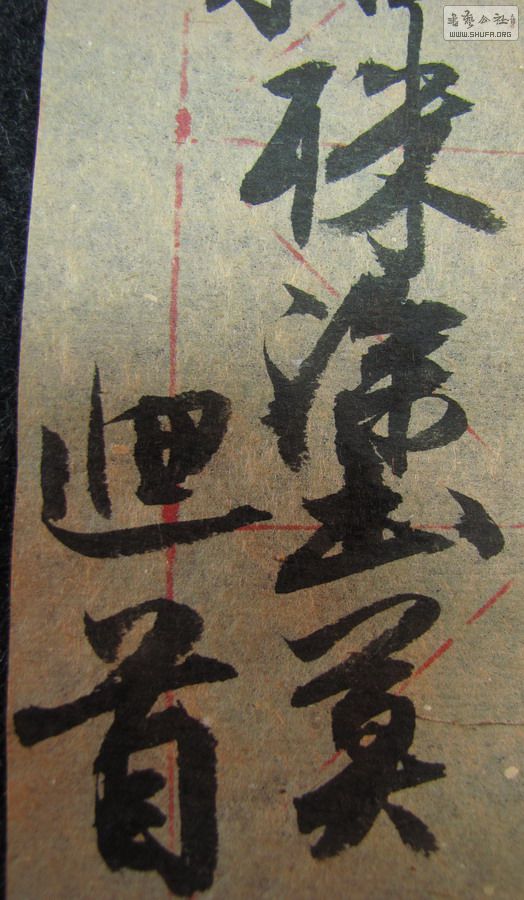 書藝公社
WWW.SHUFA.ORG
殊塗莫
迴首